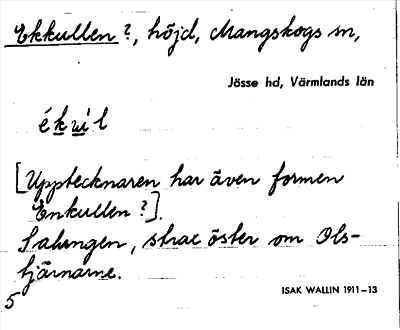 Ekkullen?, höjd, Mangskogs sn,
Jösse hd, Värmlands län
ékwil
[Upptecknaren har även formen
Enkullen?].
Salungen, strax öster om Ols-
tjärnarne.
5
ISAK WALLIN 1911–13